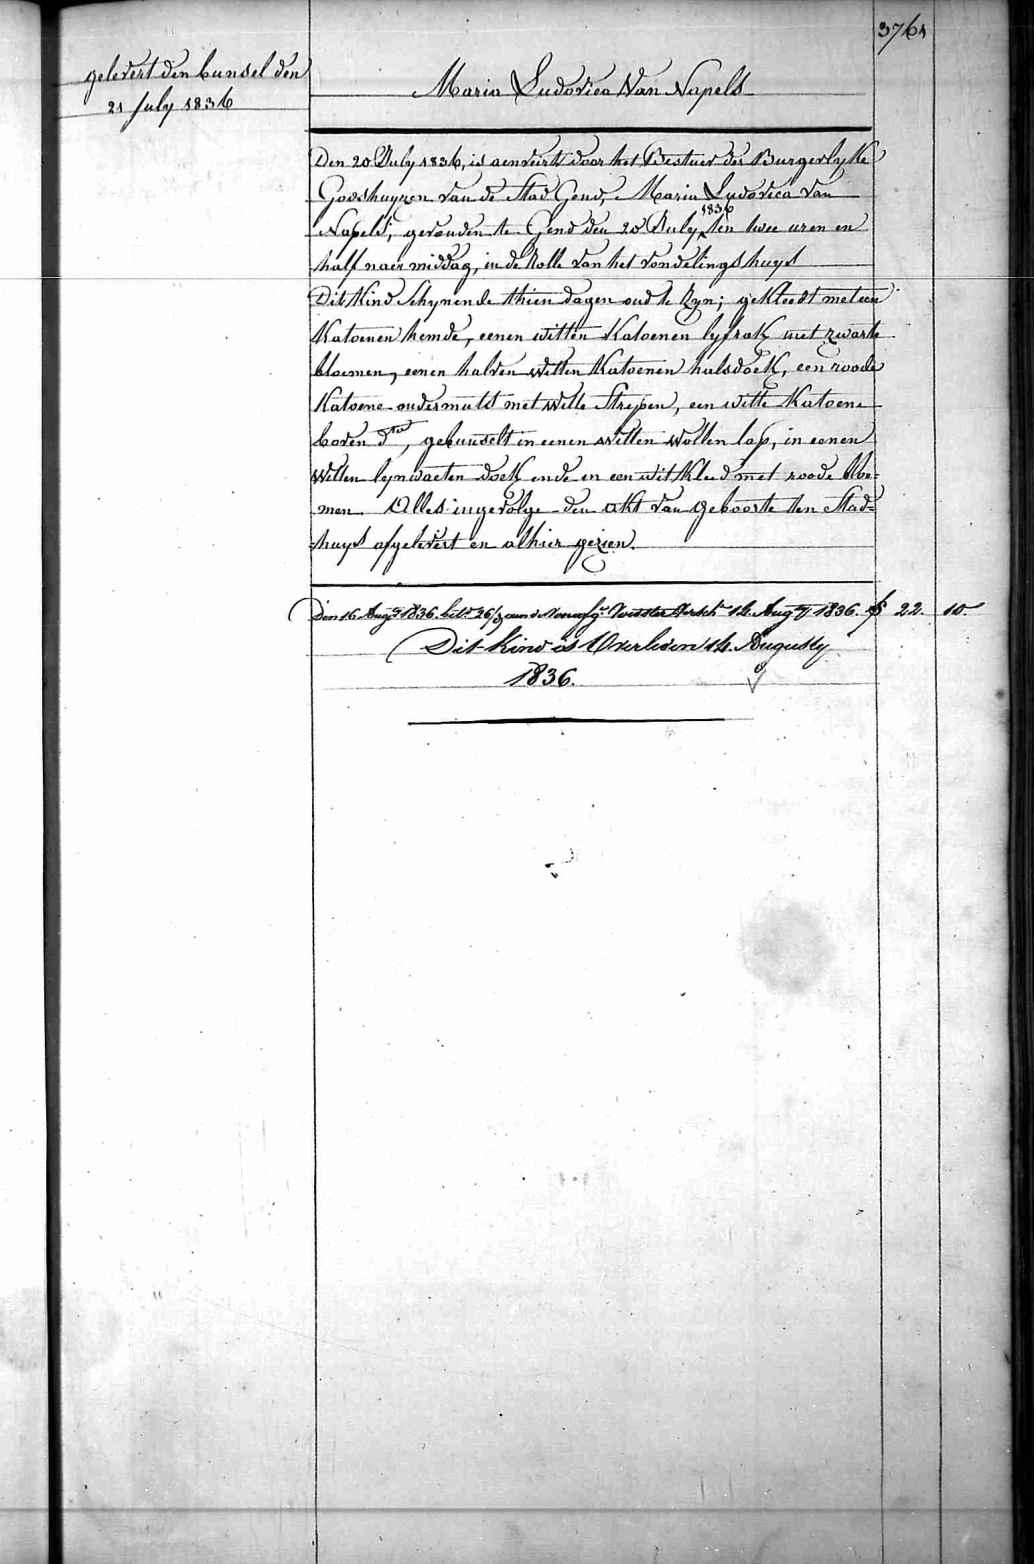 3761
gelevert den bunsel den
21 July 1836
Maria Ludovica Van Napels
Den 20 July 1836, is aenveirt door het Bestuer der Burgerlyke
Godshuyzen van de Stad Gend, Maria Ludovica van
Napels, gevonden te Gend den 20 July 1836 ten twee uren en
half naer middag, in de Rolle van het vondelingshuys
Dit Kind schynende thien dagen oud te Zyn; gekleedt met een
Katoenen hemde, eenen witten Katoenen lyfrok met zwarte
bloemen, eenen halven witten Katoenen halsdoek, een roode
Katoene ondermuts met witte Strepen, een witte Katoene
boven dto, gebunselt in eenen witten wollen lap, in eenen
witten lynwaeten doek ende en een wit Kleed met roode bloe-
men Alles ingevolge den akt van geboorte ten Stad-
huys afgelevert en alhier gezien.
Den 16 Augt 1836. 26/ aen d' 14 Augty 1836. f 22. 10.
Dit kind is Overleden 14. Augusty
1836.